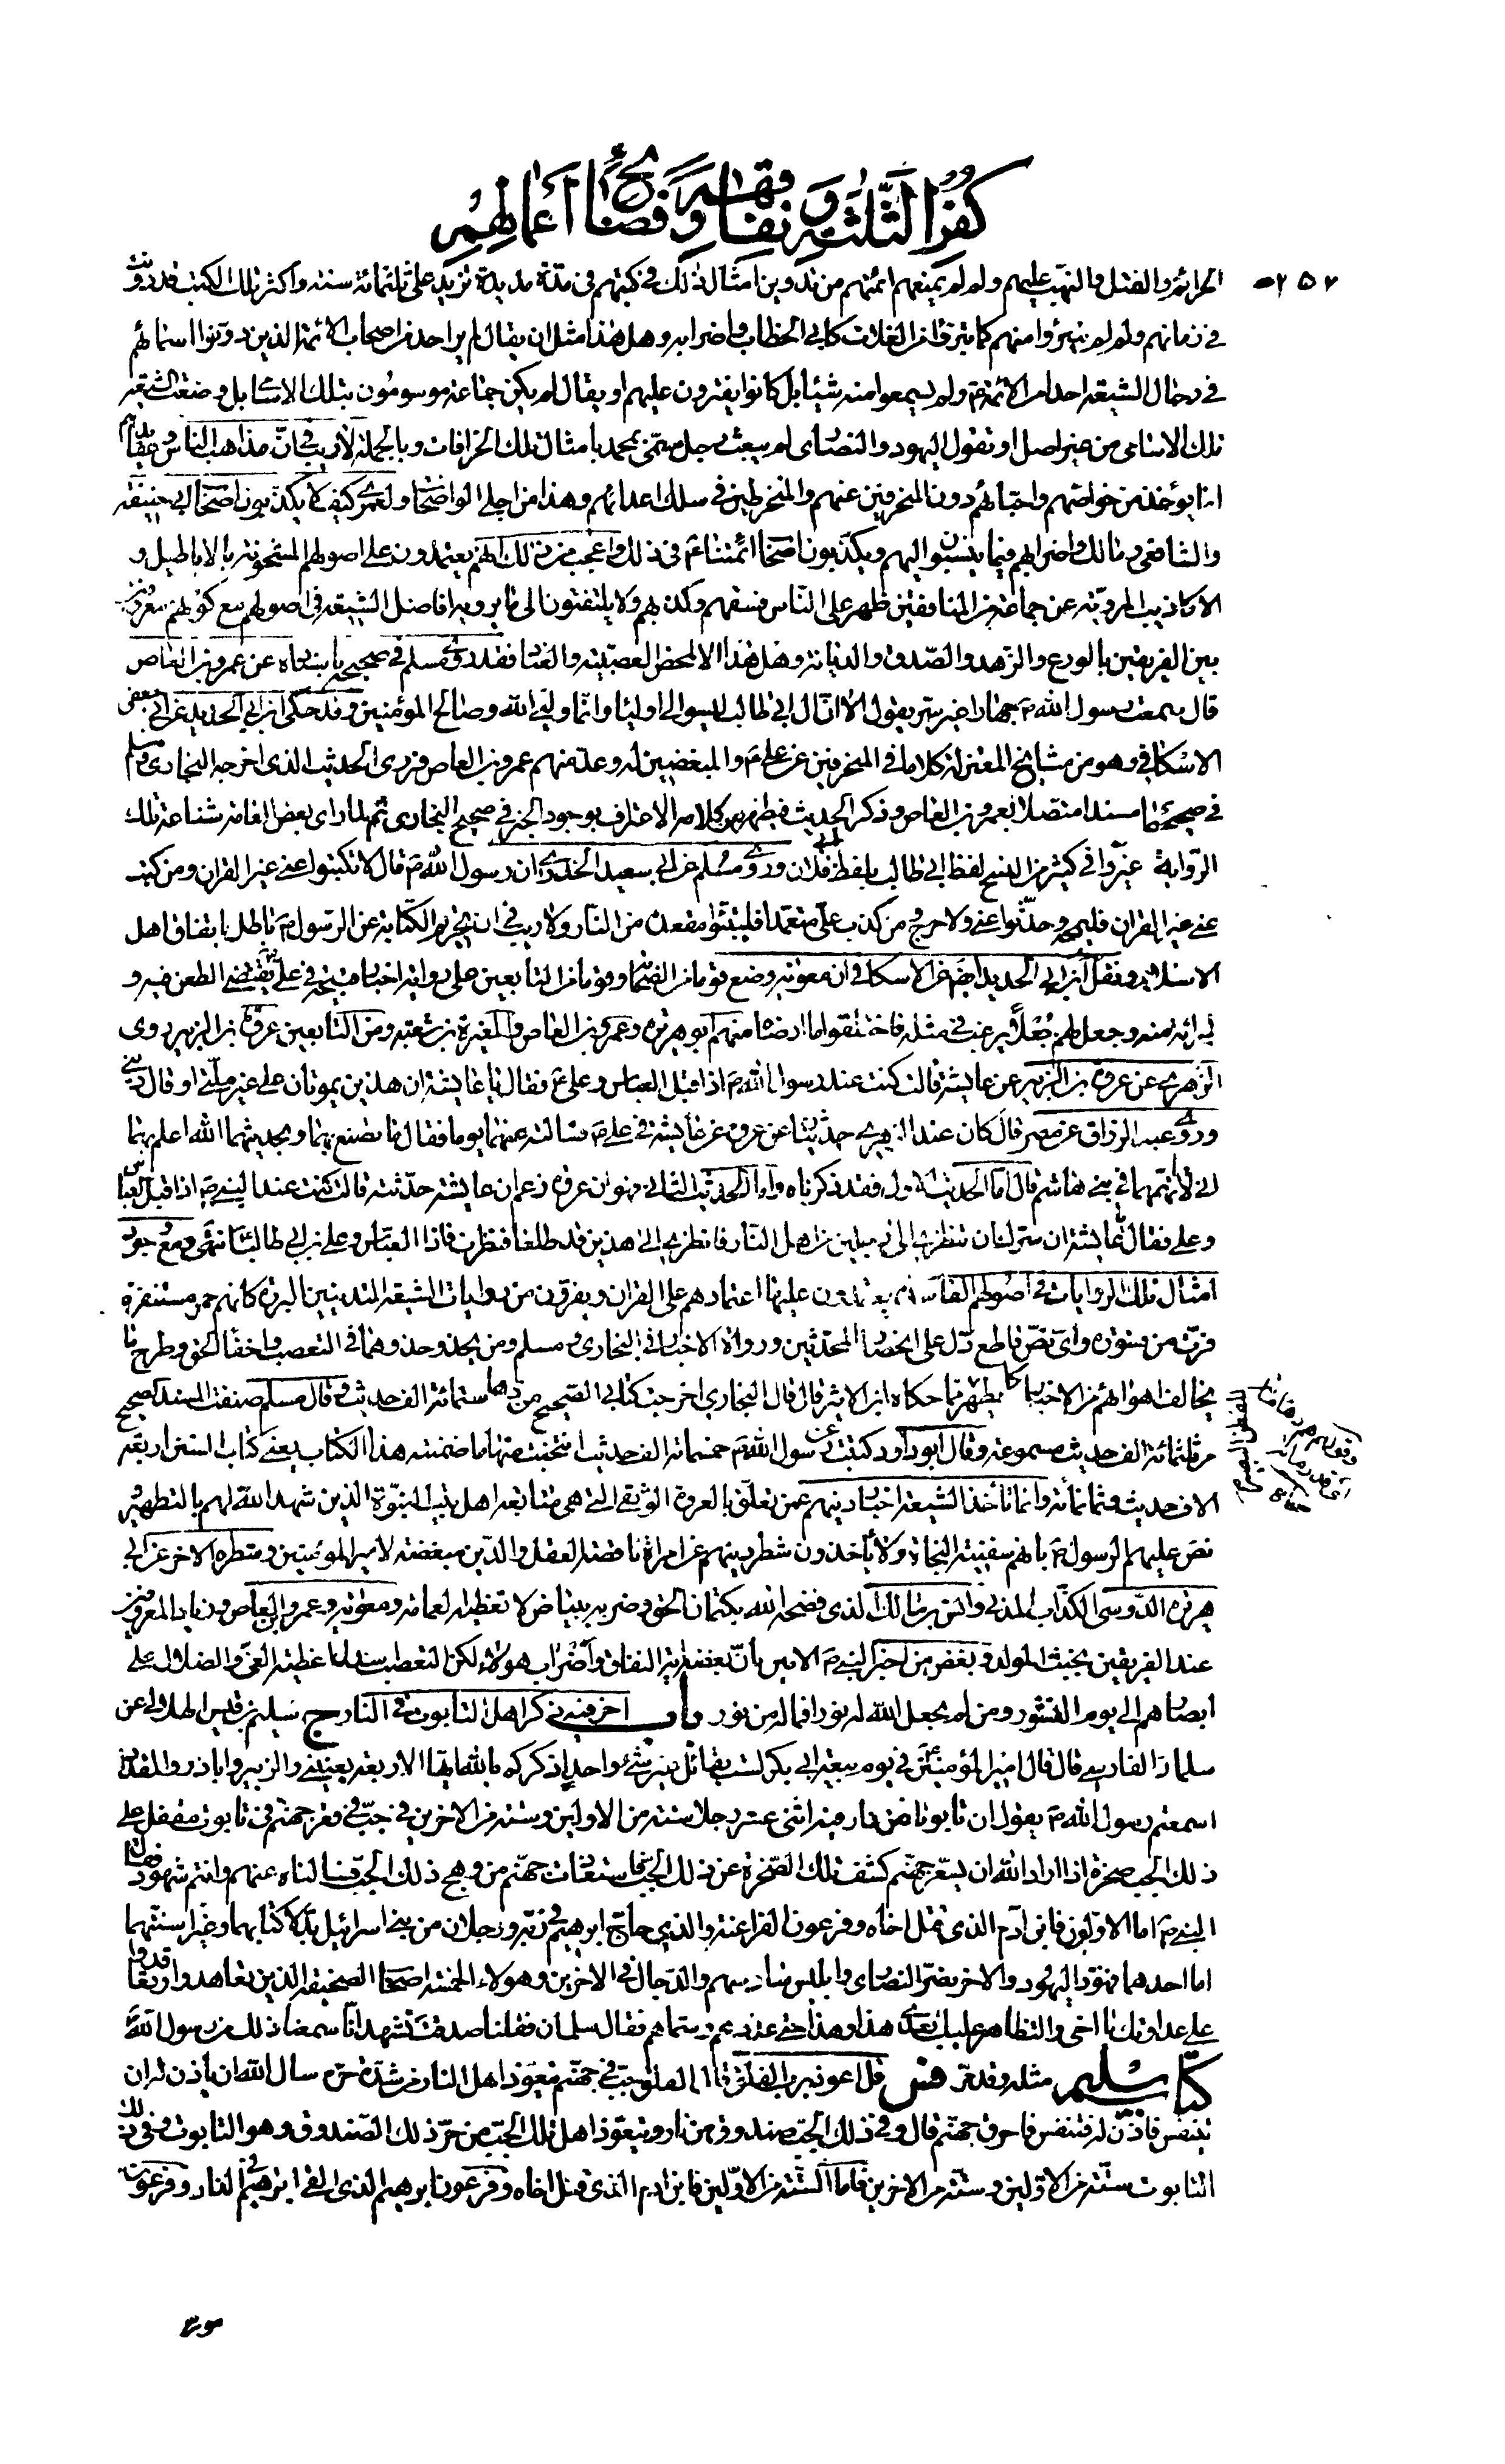 كفر الثلثة و نفاقهم و فضائح أعمالهم
٢٥٢
الجرائم والقتل والنهيب عليهم ولو لم يمنعهم ائمتهم من تدوين امثال ذلك في كتبهم في مدة مديدة تزيد على ثلثمائة سنة واكثر تلك الكتب قد دونت
في زمانهم ولو لم يتبرؤا منهم كما تبرؤا من الغلات كابي الخطاب واضرابه وهل هذا مثل ان يقال لم ير احد من اصحاب الائمة الذين دونوا اسمائهم
في رجال الشيعة احدا من الائمة ولم يسمعوا منه شيئا بل كانوا يفترون عليهم او يقال لم يكن جماعة موسومون بتلك الاسامي بل وضعت الشيعة
تلك الاسامي من غير اصل او تقول اليهود والنصارى لم يبعث رجل مسمى بمحمد بامثال تلك الخرافات وبالجملة لا ريب في ان مذاهب الناس وعقايدهم
انما يؤخذ من خواصهم واحبائهم دون المنحرفين عنهم والمنخرطين في سلك اعدائهم وهذا من اجلى الواضحات ولعمرى كيف لا يكذبون اصحاب ابي حنيفة
والشافعي ومالك واضرابهم فيما ينسبون اليهم ويكذبون اصحاب ائمتنا ع في ذلك واعجب من ذلك انهم يعتمدون على اصولهم المشحونة بالاباطيل و
الاكاذيب المروية عن جماعة من المنافقين ظهر على الناس فسقهم وكذبهم ولا يلتفتون الى ما يرويه افاضل الشيعة في اصولهم مع كونهم معروفين
بين الفريقين بالورع والزهد والصدق والديانة وهل هذا الا لمحض العصبية والعناد فقد روى مسلم في صحيحه باسناده عن عمرو بن العاص
قال سمعت رسول الله ص جهارا غير سر يقول الا ان آل ابي طالب ليسوا لي اولياء وانما وليي الله وصالح المؤمنين وقد حكى ابن ابي الحديد عن ابي جعفر
الاسكافي وهو من مشايخ المعتزلة كلاما في المنحرفين عن علي ع والمبغضين له وعد منهم عمرو بن العاص فروى الحديث الذي اخرجه البخاري ومسلم
في صحيحهما مسندا متصلا بعمرو بن العاص وذكر الحديث فيظهر من كلامه الاعتراف بوجود الخبر في صحيح البخاري ثم لما راى بعض العامة شناعة تلك
الرواية غيروا في كثير من النسخ لفظ ابي طالب بلفظ ابي فلان وروى مسلم عن ابي سعيد الخدري ان رسول الله ص قال لا تكتبوا عني غير القران ومن كتب
عني غير القران فليمحه وحدثوا عني ولا حرج من كذب علي متعمدا فليتبوا مقعده من النار ولا ريب في ان تحريم الكتابة عن الرسول ص باطل باتفاق اهل
الاسلام ونقل ابن ابي الحديد ايضا عن الاسكافي ان معوية وضع قوما من الصحابة وقوما من التابعين على رواية اخبار قبيحة في علي ع يقتضي الطعن فيه و
البرائة منه وجعل لهم جُعلًا يرغب في مثله فاختلقوا ما ارضاه منهم ابو هريرة وعمرو بن العاص والمغيرة بن شعبة ومن التابعين عروة بن الزبير روى
الزهري عن عروة بن الزبير عن عايشة قالت كنت عند رسول الله ص اذ اقبل العباس وعلي ع فقال يا عايشة ان هذين يموتان على غير ملتي او قال ديني
وروى عبد الرزاق عن معمر قال كان عند الزهري حديثان عن عروة عن عايشة في علي ع فسالته عنهما يوما فقال ما تصنع بهما وبحديثهما الله اعلم بهما
اني لأتهمهما في بني هاشم قال اما الحديث الاول فقد ذكرناه واما الحديث الثاني فهو ان عروة زعم ان عايشة حدثته قالت كنت عند النبي ص اذ اقبل العباس
وعلي فقال يا عايشة ان سرك ان تنظري الى رجلين من اهل النار فانظري الى هذين قد طلعا فنظرت فاذا العباس وعلي بن ابي طالب انتهى ومع وجود
امثال تلك الروايات في اصولهم الفاسدة يعتمدون عليها اعتمادهم على القران ويفرون من روايات الشيعة المتدينين البررة كانهم حمر مستنفرة
فرت من قسورة واي نص قاطع دل على انحصار المحدثين ورواة الاخبار في البخاري ومسلم ومن يحذو حذوهما في التعصب واخفاء الحق وطرح ما
يخالف اهوائهم من الاخبار كما يظهر مما حكاه ابن الاثير قال قال البخاري اخرجت كتابي الصحيح من زهاء ستمائة الف حديث وقال مسلم صنفت المسند الصحيح
من ثلثمائة الف حديث مسموعة وقال ابو داود كتبت عن رسول الله ص خمسمائة الف حديث انتخبت منها ما ضمنته هذا الكتاب يعني كتاب السنن اربعة
الاف حديث وثمانمائة وانما تاخذ الشيعة اخبار دينهم عمن تعلق بالعروة الوثقى التي هي متابعة اهل بيت النبوة الذين شهد الله لهم بالتطهير
نص عليهم الرسول ص بانهم سفينة النجاة ولا يأخذون شطر دينهم عن امراة ناقصة العقل والدين مبغضة لامير المؤمنين وشطره الاخر عن ابي
هريرة الدوسي الكذاب المدني وانس بن مالك الذي فضحه الله بكتمان الحق وضربه ببياض لا تغطيه العمامة ومعوية وعمرو بن العاص وزياد المعروفين
عند الفريقين بخبث المولد وبغض من اخبر النبي ص الامين بان بغضه آية النفاق واضراب هولاء لكن التعصب اسدل اغطية الغي والضلال على
ابصارهم الى يوم النشور ومن لم يجعل الله له نورا فما له من نور باب اخر فيه ذكر اهل التابوت في النار ج سليم بن قيس الهلالي عن
سلمان الفارسي قال قال امير المؤمنين ع في يوم بيعة ابي بكر لست بقائل غير شئ واحد اذكركم بالله ايها الاربعة يعنيني والزبير وابا ذر والمقداد
اسمعتم رسول الله ص يقول ان تابوتا من نار فيه اثنى عشر رجلا ستة من الاولين وستة من الاخرين في جب في قعر جهنم في تابوت مقفل على
ذلك الجب صخرة اذا اراد الله ان يسعر جهنم كشف تلك الصخرة عن ذلك الجب فاستعاذت جهنم من وهج ذلك الجب فسالناه عنهم وانتم شهود فقال
النبي ص اما الاولون فابن آدم الذي قتل اخاه وفرعون الفراعنة والذي حاج ابرهيم في ربه ورجلان من بني اسرائيل بدلا كتابهما وغيرا سنتهما
اما احدهما فهود اليهود والاخر نصر النصارى وابليس سادسهم والدجال في الاخرين وهولاء الخمسة اصحاب الصحيفة الذين تعاهدوا وتعاقدوا
على عداوتك يا اخي والتظاهر عليك بعدي هذا وهذا حتى عدهم وسماهم فقال سلمان فقلنا صدقت نشهد انا سمعنا ذلك من رسول الله
كتاب سليم مثله وقد مر فس قل اعوذ برب الفلق قال الفلق جب في جهنم يتعوذ اهل النار من شدة حره سال الله ان ياذن له ان
يتنفس فاذن له فتنفس فاحرق جهنم قال وفي ذلك الجب صندوق من نار ويتعوذ اهل تلك الجب من حر ذلك الصندوق وهو التابوت وفي ذلك
التابوت ستة من الاولين وستة من الاخرين فاما الستة من الاولين فابن ادم الذي قتل اخاه وفرعون ابرهيم الذي القى ابرهيم في النار وفرعون